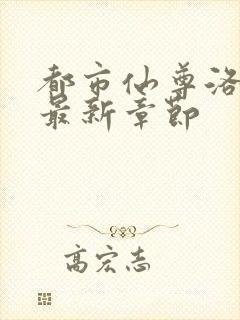 都市仙尊洛
最新章节
高宏志